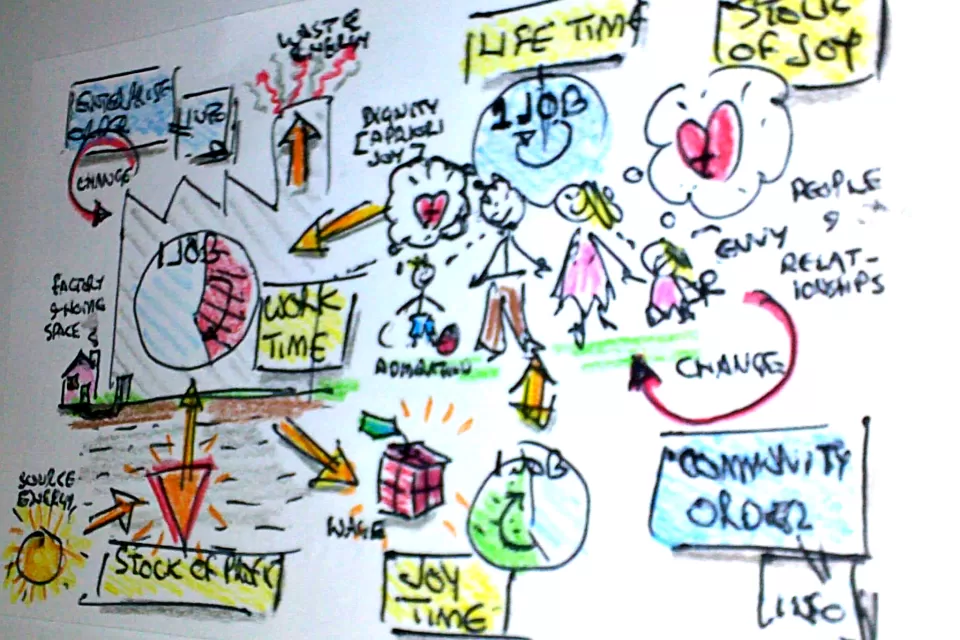 WASTE
ENERGY
LIFE TIME
STOCK
OF JOY
ENTERPRISE
ORDER
INFO
CHANGE
DIGNITY
JOY
1 JOB
PEOPLE
&
RELAT-
IONSHIPS
ENVY
1 JOB
FACTORY
SPACE
WORK
TIME
CHANGE
SOURCE
ENERGY
WAGE
1 JOB
COMMUNITY
ORDER
STOCK OF PROFIT
JOY
TIME
INFO